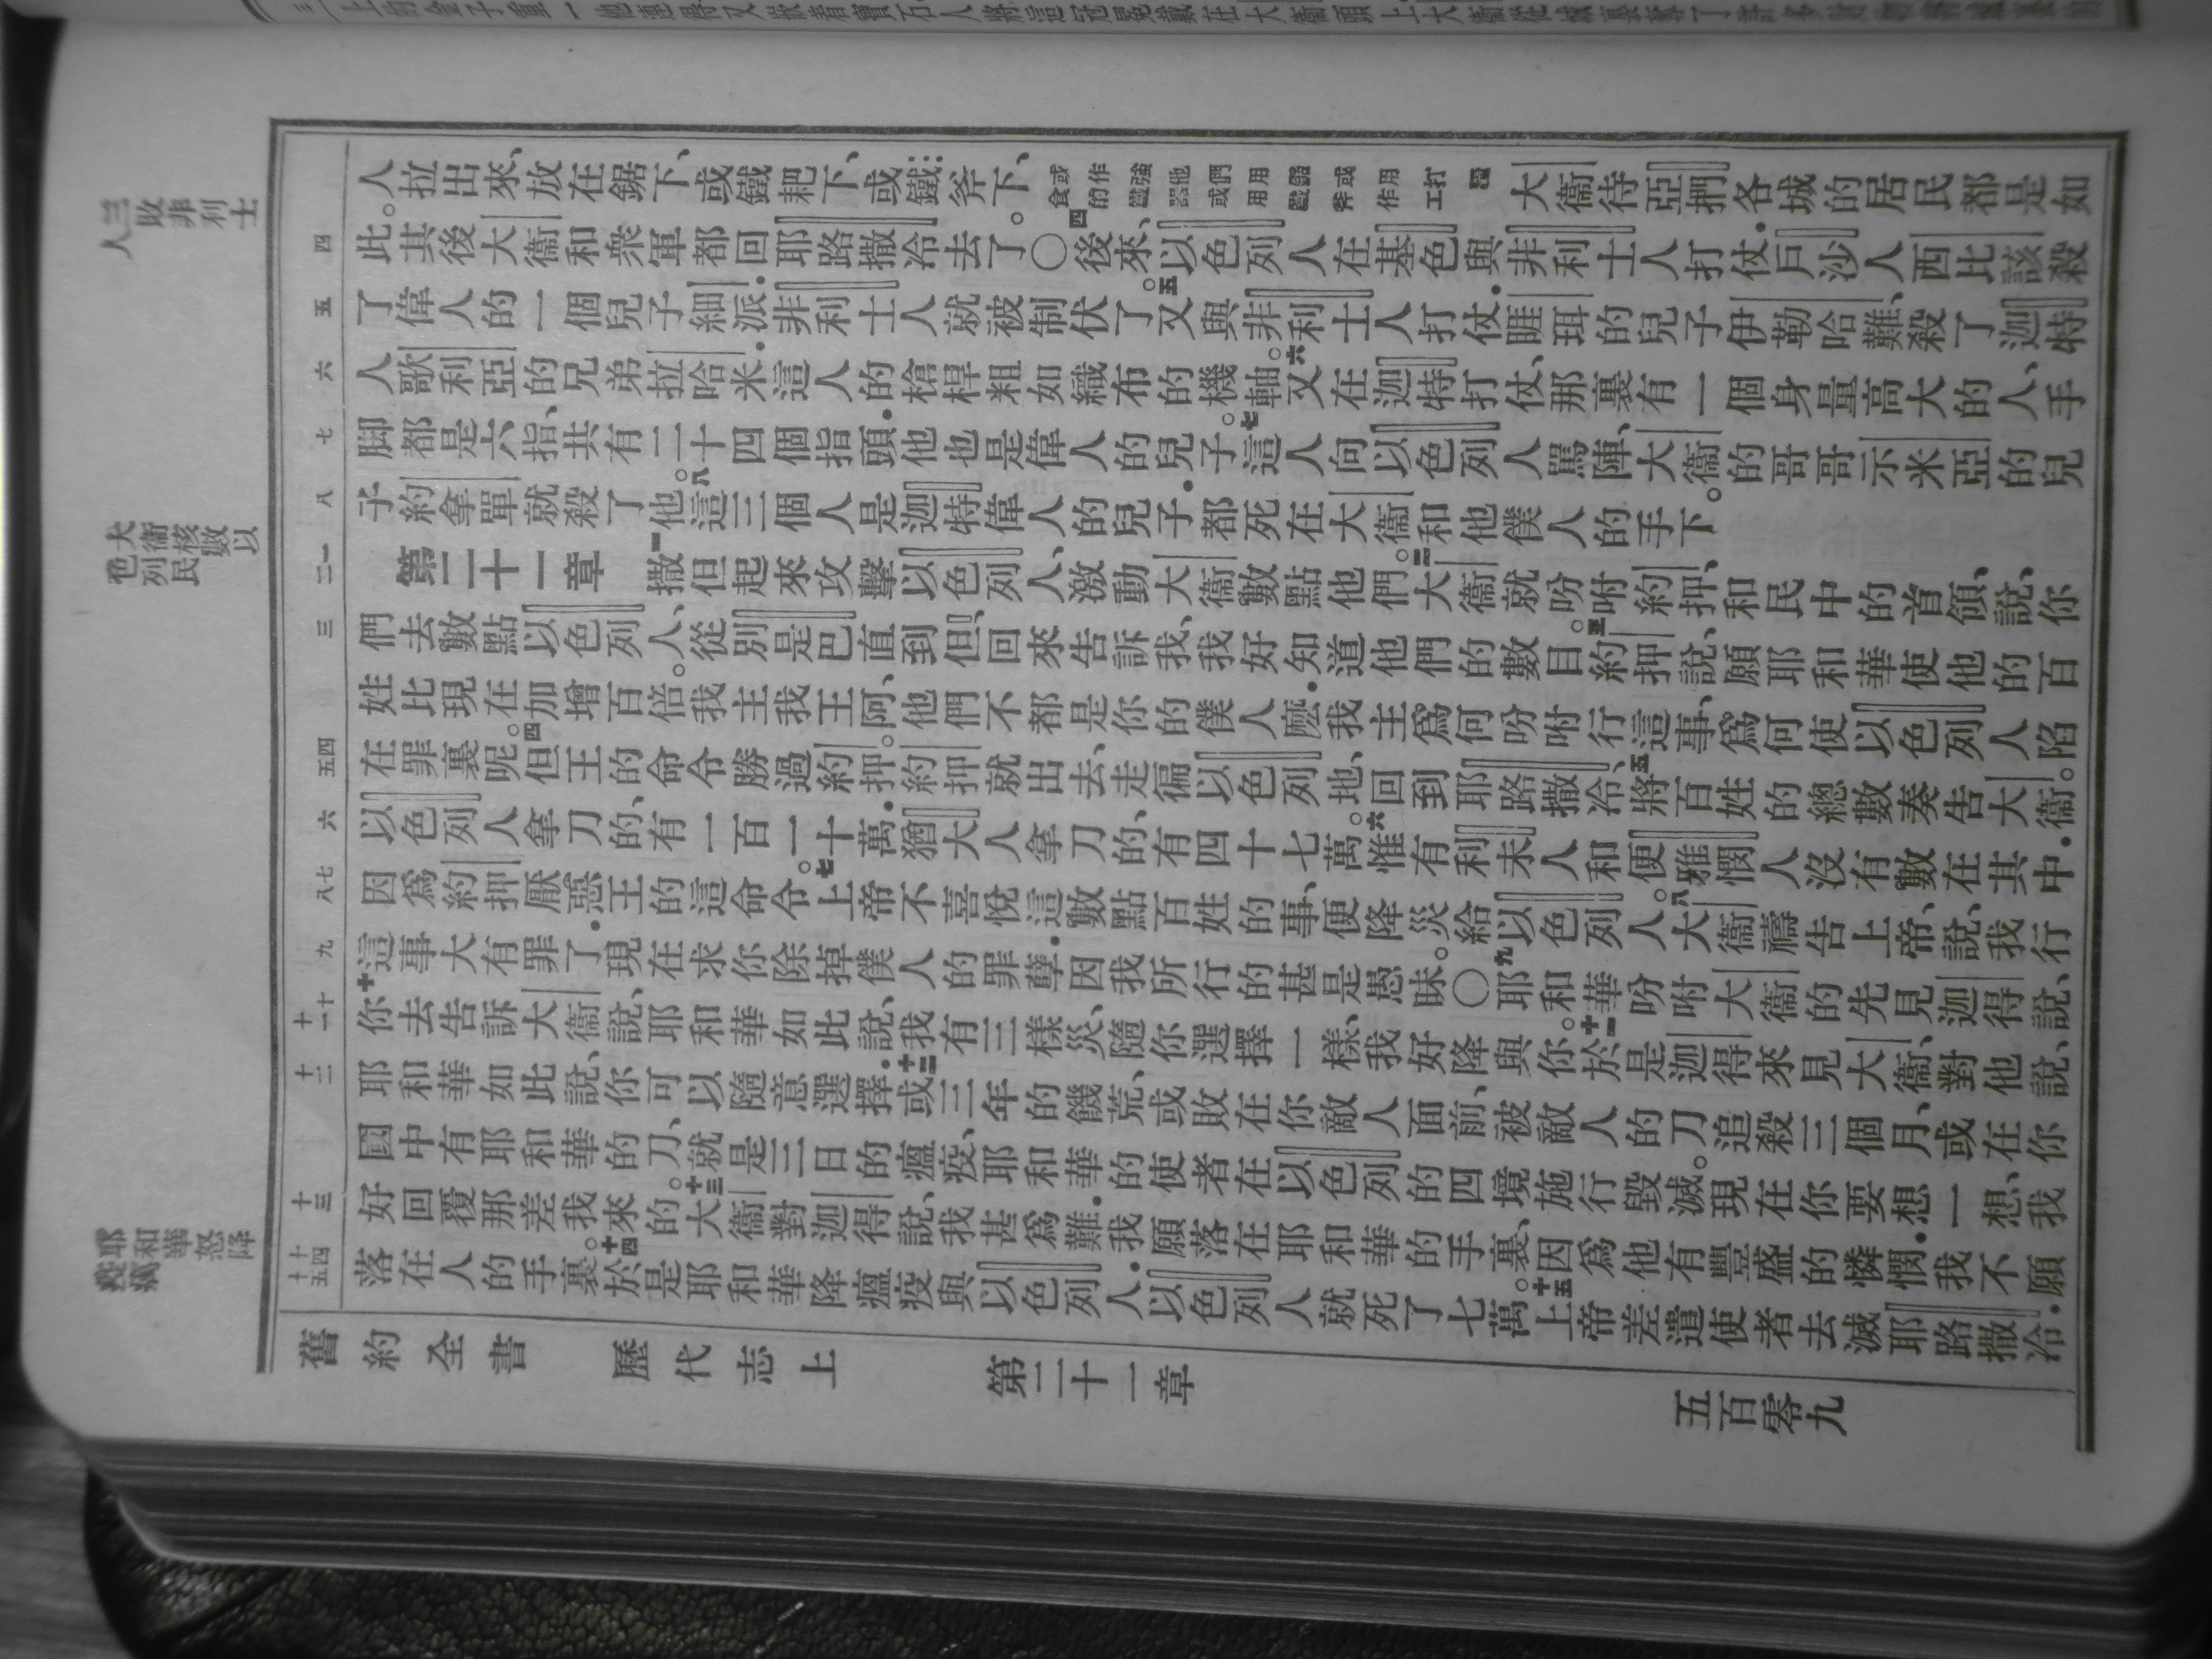 人拉出來、放在鋸下、或鐵耙下、或鐵斧下、或作強他們用鋸或用打糧食的鐵器或用鐵斧作工大衞待亞捫各城的居民都是如
此。其後大衞和衆軍都回耶路撒冷去了。〇四後來、以色列人在基色與非利士人打仗．戶沙人西比該殺
了偉人的一個兒子細派．非利士人就被制伏了。五又與非利士人打仗．睚珥的兒子伊勒哈難、殺了迦特
人歌利亞的兄弟拉哈米．這人的槍桿粗如織布的機軸。六又在迦特打仗、那裏有一個身量高大的人、手
脚都是六指、共有二十四個指頭．他也是偉人的兒子。七這人向以色列人罵陣、大衞的哥哥示米亞的兒
子約拿單就殺了他。八這三個人是迦特偉人的兒子．都死在大衞和他僕人的手下。
第二十一章 一撒但起來攻擊以色列人、激動大衞數點他們。二大衞就吩咐約押、和民中的首領、說、你
們去數點以色列人、從別是巴直到但、回來告訴我、我好知道他們的數目。三約押說、願耶和華使他的百
姓比現在加增百倍。我主我王阿、他們不都是你的僕人麼．我主爲何吩咐行這事、爲何使以色列人陷
在罪裏呢。四但王的命令勝過約押。約押就出去、走徧以色列地、回到耶路撒冷、五將百姓的總數奏告大衞。
以色列人拿刀的、有一百一十萬．猶大人拿刀的、有四十七萬。六惟有利未人和便雅憫人沒有數在其中．
因爲約押厭惡王的這命令。七上帝不喜悅這數點百姓的事、便降災給以色列人。八大衞禱告上帝、說、我行
這事大有罪了．現在求你除掉僕人的罪孽．因我所行的甚是愚昧。〇九耶和華吩咐大衞的先見迦得、說、
十你去告訴大衞、說、耶和華如此說、我有三樣災、隨你選擇一樣、我好降與你。十一於是迦得來見大衞、對他說、
耶和華如此說、你可以隨意選擇．十二或三年的饑荒、或敗在你敵人面前、被敵人的刀追殺三個月、或在你
國中有耶和華的刀、就是三日的瘟疫、耶和華的使者在以色列的四境施行毀滅。現在你要想一想、我
好回覆那差我來的。十三大衞對迦得說、我甚爲難．我願落在耶和華的手裏、因爲他有豐盛的憐憫．我不願
落在人的手裏。十四於是耶和華降瘟疫與以色列人．以色列人就死了七萬。十五上帝差遣使者去滅耶路撒冷．
舊約全書 歷代志上 第二十一章 五百零九
三敗非利士人
四
五
六
七
八
大衞核數以色列民
一二
三
四五
六
七八
九
十十一
十二
十三
十四十五
耶和華怒降瘟疫